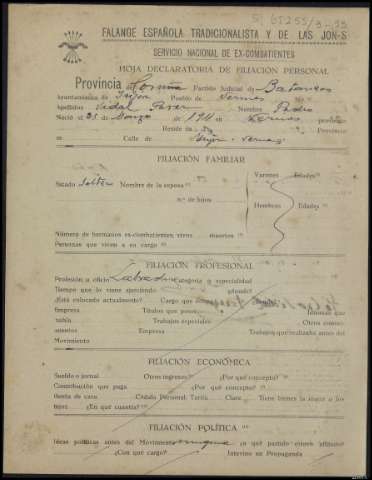 FALANGE ESPAÑOLA TRADICIONALISTA Y DE LAS JON-S
SERVICIO NACIONAL DE EX-COMBATIENTES
HOJA DECLARATORIA DE FILIACIÓN PERSONAL
Provincia de Coruña Partido Judicial de Betanzos
Ayuntamiento de Irijoa Pueblo de
Apellidos Vidal Nombre Pedro
Nació el 25 de Marzo de 1911 en
Reside en Provincia
Calle de
FILIACIÓN FAMILIAR
Estado Solter Nombre de la esposa
n.º de hijos
Varones Edades
Hembras Edades
Número de hermanos ex-combatientes, vivos muertos
Personas que viven a su cargo
FILIACIÓN PROFESIONAL
Profesión u oficio Labrador Categoría o especialidad
Tiempo que lo viene ejerciendo
¿Está colocado actualmente? Cargo que
Empresa Títulos que posee Idiomas que
Trabajos especiales Otros conoci-
mientos Empresa Trabajos que realizaba antes del
Movimiento
FILIACIÓN ECONÓMICA
Sueldo o jornal Otros ingresos ¿Por qué concepto?
Contribución que paga ¿Por qué concepto?
Renta de casa Cédula Personal Tarifa Clase Tiene bienes la mujer o los
hijos ¿En qué cuantía?
FILIACIÓN POLÍTICA
Ideas políticas antes del Movimiento ninguna ¿a qué partido estuvo afiliado?
¿Con qué cargo? Intervino en Propaganda